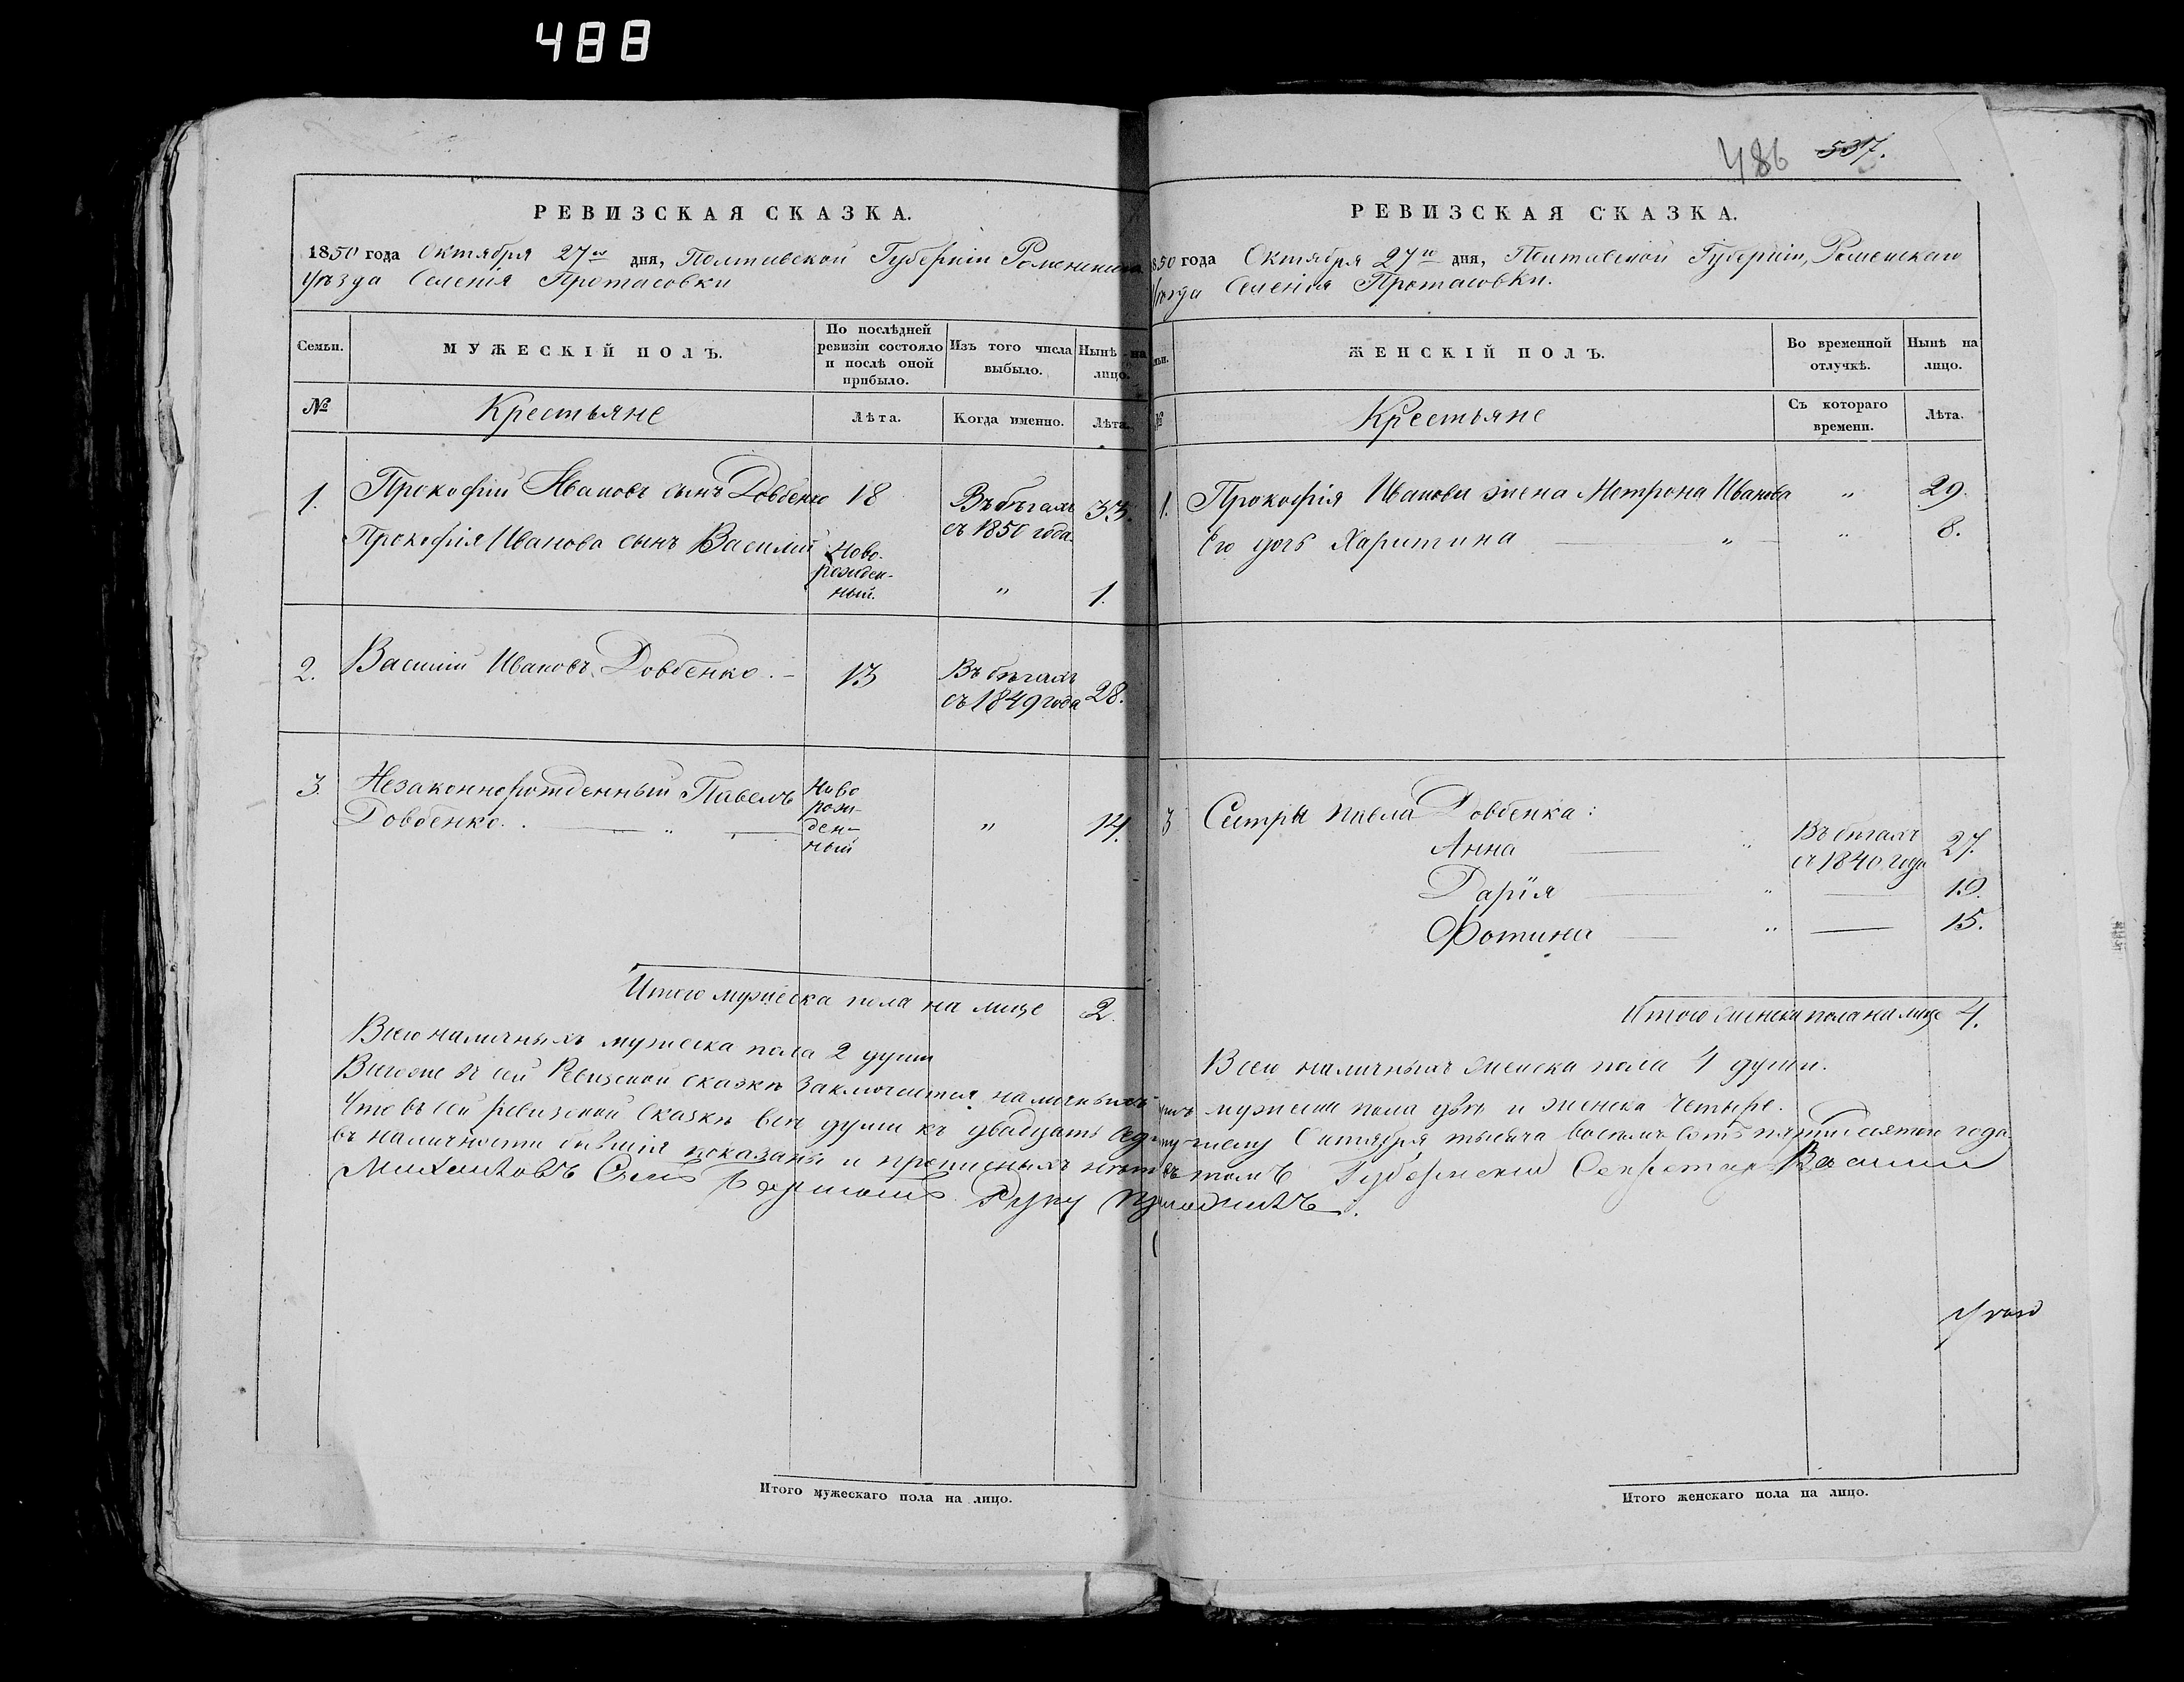 488
РЕВИЗСКАЯ СКАЗКА.
1850 года Октября 27го дня, Полтавской Губерніи Роменскаго
уѣзда Селенія Протасовки
Семьи.
МУЖЕСКІЙ ПОЛЪ.
По послѣдней
ревизіи состояло
и послѣ оной
прибыло.
Изъ того числа
выбыло.
Нынѣ на
лицо.
№
Крестьяне
Лѣта.
Когда именно.
Лѣта.
1.
Прокофий Ивановъ сынъ Довбенко
18
Въ бѣгахъ
съ 1850 года
33.
Прокофія Иванова сынъ Василий
Ново-
рожден-
ный.
"
1.
2.
Василий Ивановъ Довбенко. -
13
Въ бѣгахъ
съ 1849 года
28.
3.
Незаконнорожденный Павелъ
Довбенко. . "
Ново
рож-
ден-
ный
"
14.
Итого мужеска пола на лице 2.
Всего наличныхъ мужеска пола 2 души
Итого мужескаго пола на лицо.
486 537.
РЕВИЗСКАЯ СКАЗКА.
850 года Октября 27го дня, Полтавской Губерніи, Роменскаго
уѣзда Селенія Протасовки.
ЖЕНСКІЙ ПОЛЪ.
Во временной
отлучкѣ.
Нынѣ на
лицо.
№
Крестьяне
Съ котораго
времени.
Лѣта.
1.
Прокофія Иванова жена Мотрона Иванова " 29.
Его дочь Харитина " " 8.
3
Сестры Павла Довбенка:
Анна "
Въ бѣгахъ
съ 1840 года
27.
Дарїя " 19.
Фотина " 15.
Итого женска пола на лице 4.
Всего наличныхъ женска пола 4 души.
Всего же въ сей Ревизской сказкѣ заключается наличныхъ мужеска пола двѣ и женска четыре.
Что въ сей ревизской сказкѣ все души къ двадцать седьмому числу Октября тысяча восемь сотъ пятидесятого года
въ наличности бывшія показаны и прописныхъ нѣтъ въ томъ Губернский Секретарь Василий
Михайловъ Сынъ Руку приложилъ.
Итого женскаго пола на лицо.